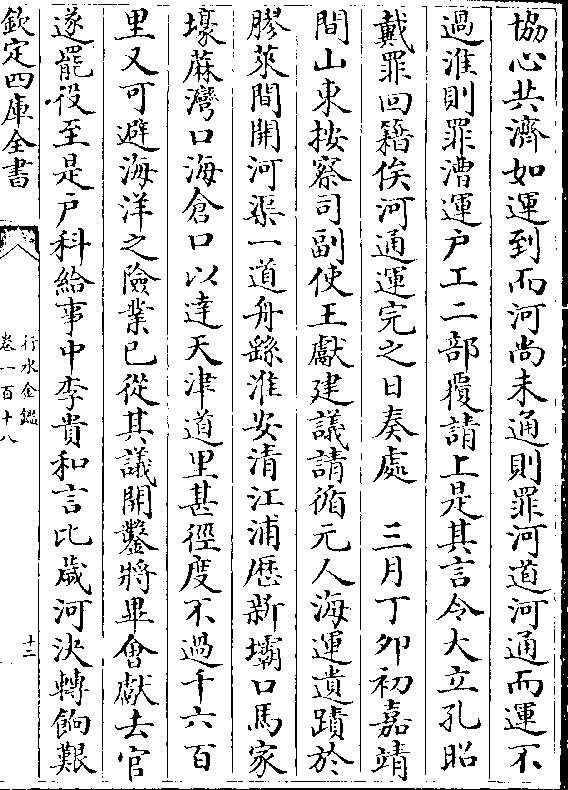 協心共濟如運到而河尚未通則罪河道河通而運不
過淮則罪漕運户工二部覆請上是其言令大立孔昭
戴罪回籍俟河通運完之日奏處　三月丁卯初嘉靖
間山東按察司副使王獻建議請循元人海運遺蹟於
膠萊間開河渠一道舟繇淮安清江浦歴新壩口馬家
壕蔴灣口海倉口以達天津道里甚徑度不過千六百
里又可避海洋之險業已從其議開鑿將畢會獻去官
遂罷役至是户科給事中李貴和言比歲河決轉餉艱
欽定四庫全書
行水金鑑
卷一百十八
十二